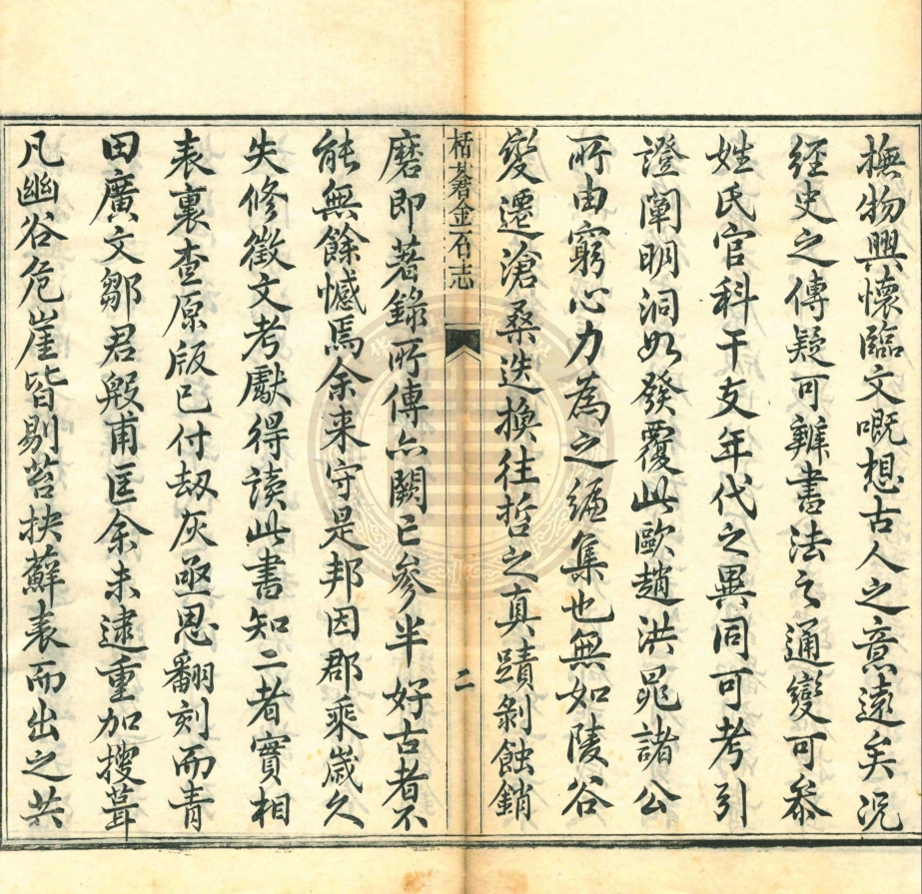 撫物興懷臨文嘅想古人之意遠矣況
經史之傳疑可辨書法之通變可叅
姓氏官科干支年代之異同可考引
證闡明洞如發覆此歐趙洪晁諸公
所由窮心力為之編集也無如陵谷
變遷滄桑迭換往哲之真蹟剝蝕銷
栝蒼金石志
二
磨即著錄所傳亦闕已參半好古者不
能無餘憾焉余来守是邦因郡乘歲久
失修徵文考獻得讀此書知二者實相
表裏查原版已付劫灰亟思翻刻而青
田廣文鄒君殿甫匡余未逮重加搜葺
凡幽谷危崖皆剔苔抉蘚表而出之共